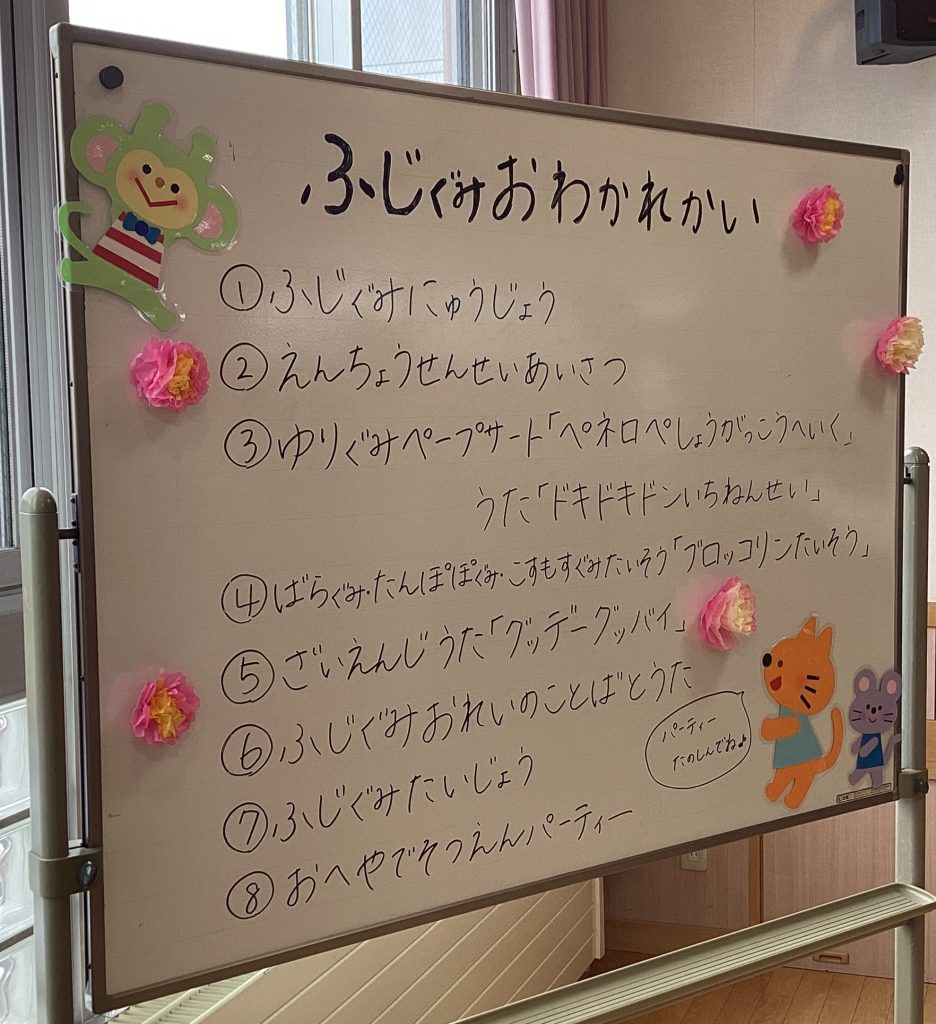 ふじぐみおわかれかい
①ふじぐみにゅうじょう
②えんちょうせんせいあいさつ
③ゆりぐみペープサート「ペネロペしょうがっこうへいく」
うた「ドキドキドンいちねんせい」
④ばらぐみ・たんぽぽぐみ・こすもすぐみたいそう「ブロッコリンたいそう」
⑤ざいえんじうた「グッデーグッバイ」
⑥ふじぐみおれいのことばとうた
⑦ふじぐみたいじょう
⑧おへやでそつえんパーティー
パーティー
たのしんでね♪